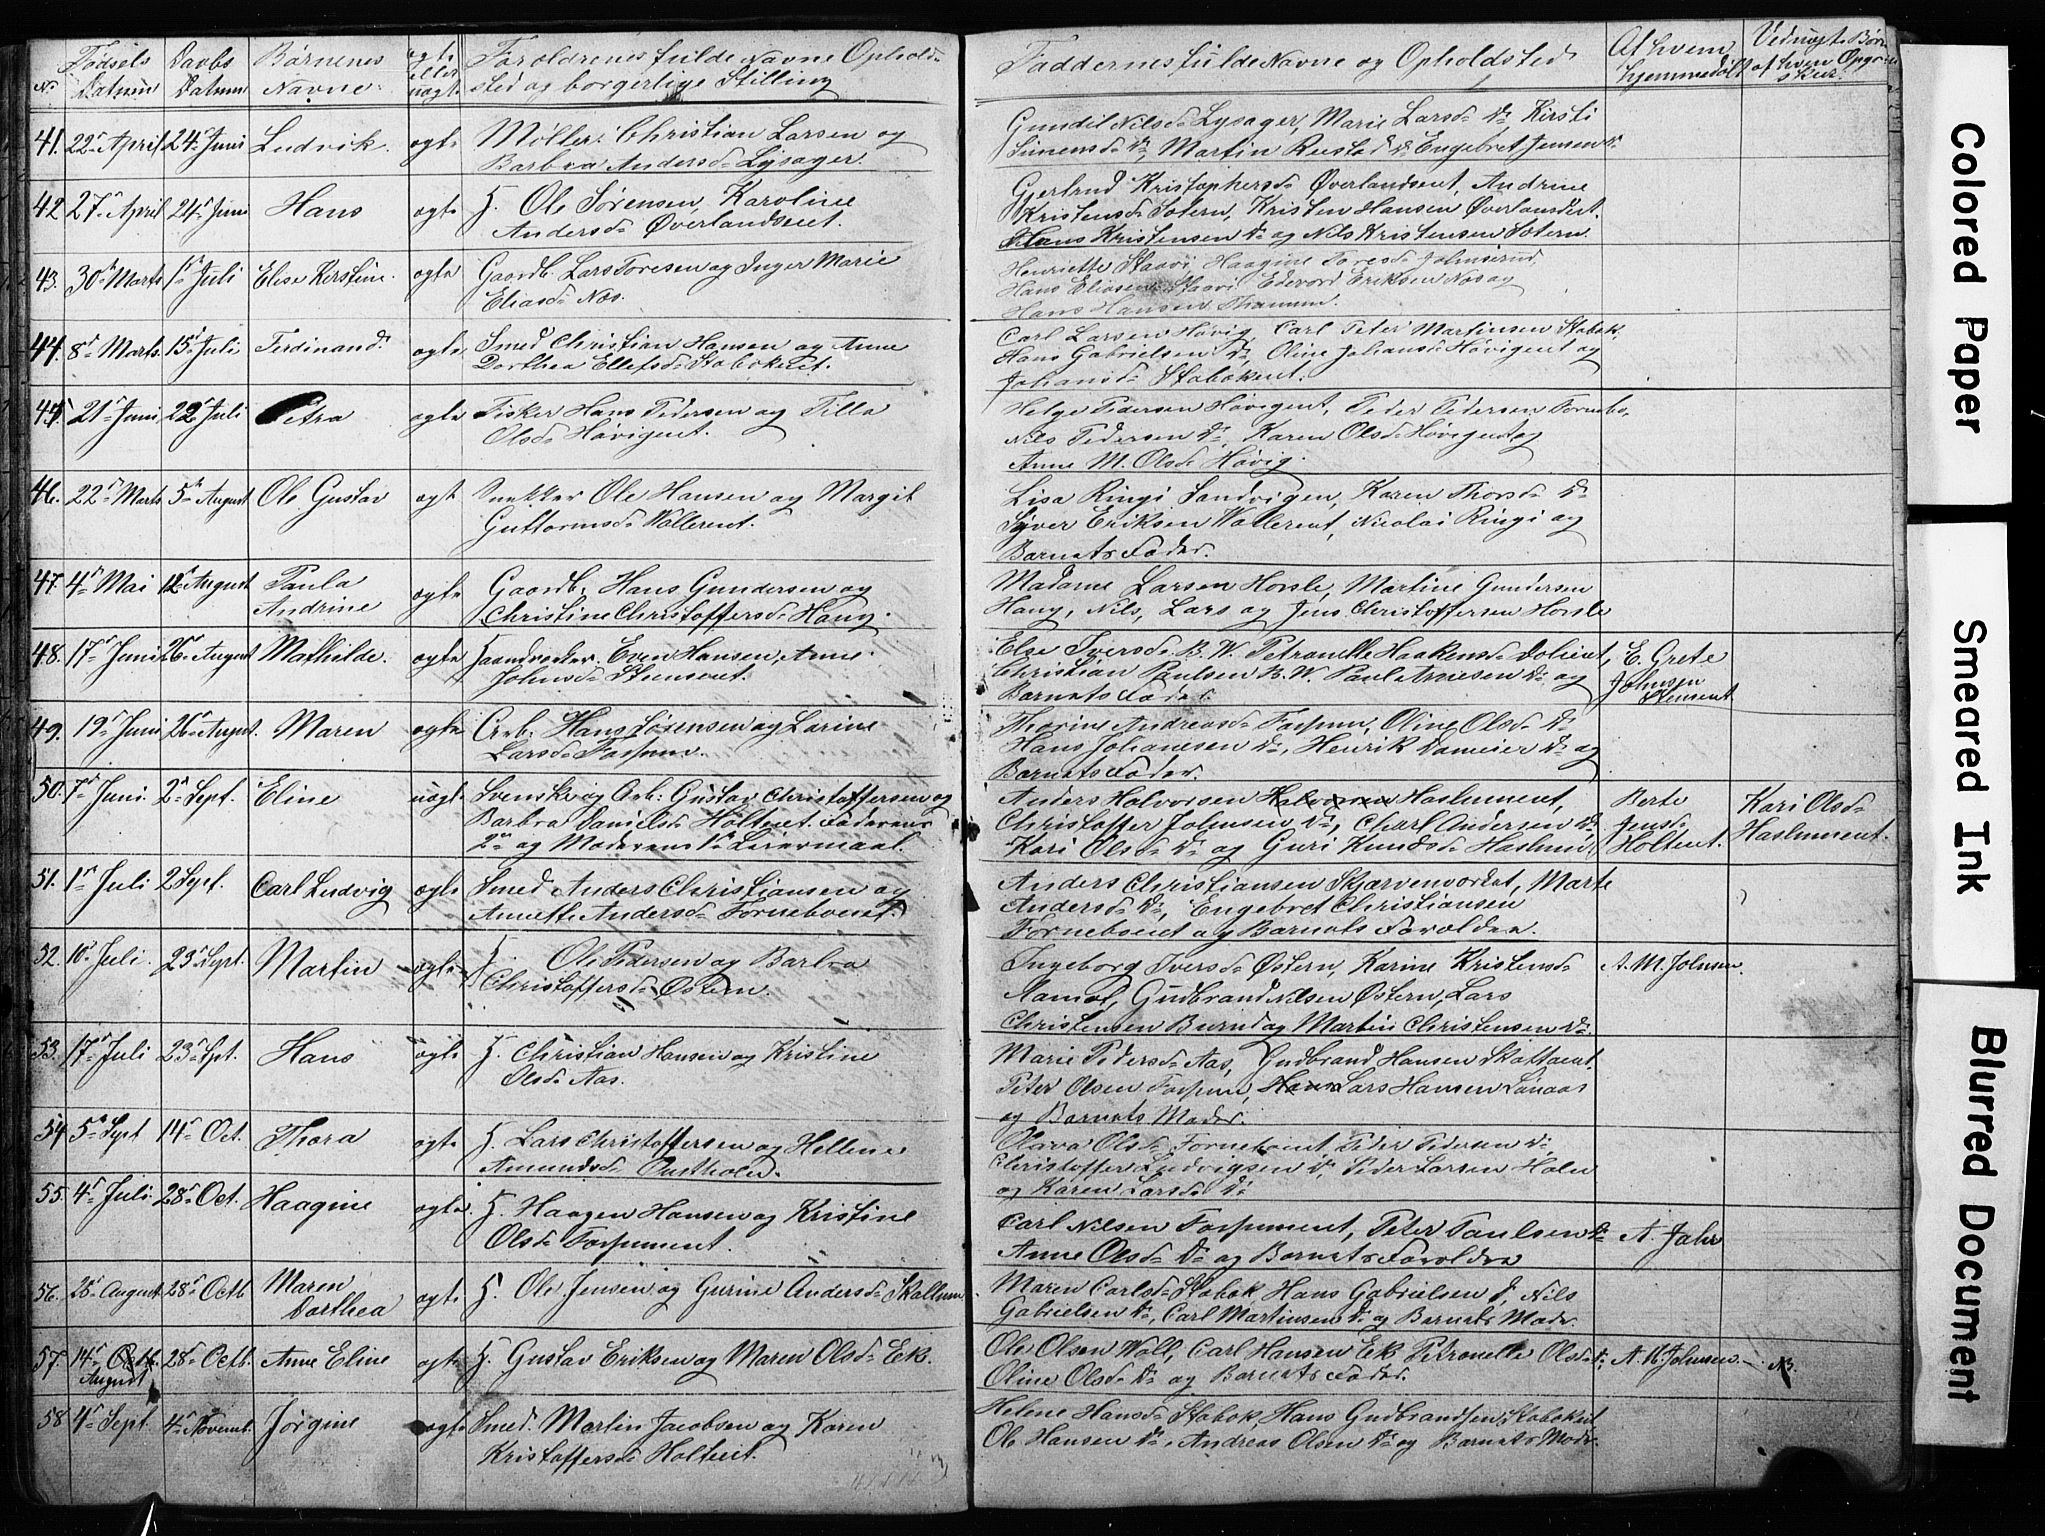 No
Fødsels Datum
Daabs Datum
Børnenes Navne
ægte eller uægte
Forældrenes fulde Navne Opholdsted og borgerlige Stilling
Faddernes fulde Navne og Opholdsted
Af hvem hjemmedøbt
Ved uægte Børn af hvem Opgi
41. 22 April 24 Juni Ludvik. ægte Møller: Christian Larsen og
Barbra Andersd Lysager.
Gundil Nilsd Lysager, Marie Larsd Do Kirsti
Simensd Do, Martin Rustad Do Engebret Jensen Do
42 27 April 24 Juni Hans ægte H. Ole Sørensen, Karoline
Andersd Øverlandseiet.
Gjertrud Kristophersd Øverlandseiet, Andrine
Kristensd Østern, Kristen Hansen Øverlandseiet.
Hans Kristensen Do og Nils Kristensen Østern.
43. 30 Marts 1 Juli Elise Kirstine. ægte Gaardb. Lars Toresen og Inger Marie
Eliasd Næs.
Henriette Staavi, Haagine Toresd Johnsrud,
Hans Eliasen Staavi, Edevard Eriksen Næs og
Hans Hansen
44. 8 Marts. 15 Juli Ferdinand. ægte Smed Christian Hansen og Anne
Dorthea Ellefsd Stabekeiet.
Carl Larsen Høvig, Carl Peter Martinsen Stabek,
Hans Gabrielsen Do, Oline Johansd Høvigeiet og
Johansd Stabekeiet.
45. 21 Juni 22 Juli Petra ægte Fisker Hans Pedersen og Tilla
Olsd Høvigeiet.
Helge Pedersen Høvigeiet, Peder Pedersen Fornebo,
Nils Pedersen Do, Karen Olsd Høvigeiet og
Anne M. Olsd Høvig.
46. 22 Marts 5 August Ole Gustav ægte Snekker Ole Hansen og Margit
Guttormsd Wallereiet.
Lisa Ringi Sandvigen, Karen Thorsd Do
Syver Eriksen Wallereiet, Nicolai Ringi og
Barnets Fader.
47. 4 Mai 12 August Paula
Andrine ægte Gaardb. Hans Gundersen og
Christine Christoffersd Haug.
Madame Larsen Horsle, Martine Gundersen
Haug, Nils, Lars og Jens Christoffersen Horsle
48. 17 Juni 26 August Mathilde. ægte Haandverker Even Hansen, Anne
Johnsd Stenseiet.
Else Iversd B. W. Petronelle Haakensd
Christian Paulsen B. W. Paul Do og
Barnets Fader.
E. Grete
Johnsen
Stenseiet
49. 19 Juni 26 August. Maren ægte Arb. Hans Sørensen og Larine
Larsd Fossum.
Thorine Andreasd Fossum, Oline Olsd Do
Hans Johanesen Do, Henrik Dameier Do og
Barnets Fader.
50. 7 Juni. 2 Sept. Eline uægt. Svensk og Arb: Gustav Christoffersen og
Barbra Danielsd Holteiet. Faderens
2 og Moderens 1 Leiermaal.
Anders Halvorsen Halvorsen Haslumeiet,
Christoffer Johnsen Do, Charl Andersen Do,
Kari Olsd Do og Guri Knudsd Haslum
Berte
Jensd
Holteiet.
Kari Olsd
Haslumeiet.
51. 1 Juli 2 Sept. Carl Ludvig ægte Smed Anders Christiansen og
Annette Andersd Forneboeiet.
Anders Christiansen Skjærvenværket, Marte
Andersd Do, Engebret Christiansen
Forneboeiet og Barnets Forældre.
52. 10 Juli. 23 Sept. Martin ægte H. Ole Pedersen og Barbra
Christoffersd Østern.
Ingeborg Iversd Østern, Karine Kristensd
Gudbrand Nilsen Østern, Lars
Christensen Burud og Martin Christensen Do
A. M. Johnsen.
53. 17 Juli 23 Sept. Hans ægte H. Christian Hansen og Kristine
Olsd Aas.
Marie Pedersd Aas, Gudbrand Hansen
Peter Olsen Fossum, Hans Lars Hansen
og Barnets Moder.
54 5 Sept 14 Oct. Thora ægte H. Lars Christoffersen og Hellene
Amundsd
Olava Olsd Forneboeiet, Peder Pedersen Do,
Christoffer Ludvigsen Do, Peder Larsen Holm
og Karen Larsd Do
55. 4 Juli. 28 Oct. Haagine ægte. H. Haagen Hansen og Kristine
Olsd Fossumeiet.
Carl Nilsen Fossumeiet, Peter Paulsen Do
Anne Olsd Do og Barnets Forældre
A. Jahr
56. 25 August 28 Octb Maren
Dorthea ægte H. Ole Jensen og Gurine Andersd Skallum
Maren Carlsd Stabek, Hans Gabrielsen Do, Nils
Gabrielsen Do, Carl Martinsen Do og Barnets Moder.
57. 14 Octb. 28 Octb. Anne Eline ægte H. Gustav Eriksen og Maren Olsd Ek.
August
Ole Olsen Woll, Carl Hansen Ek Petronelle Olsd Do
Oline Olsd Do og Barnets Fader.
A. M. Johnsen
58 4 Sept. 4 Novemb. Jørgine ægte Smed. Martin Jacobsen og Karen
Kristoffersd Holteiet.
Helene Hansd Stabek, Hans Gudbrandsen Stabekeiet
Ole Hansen Do, Andreas Olsen Do og Barnets Moder.
Colored Paper
Smeared Ink
Blurred Document